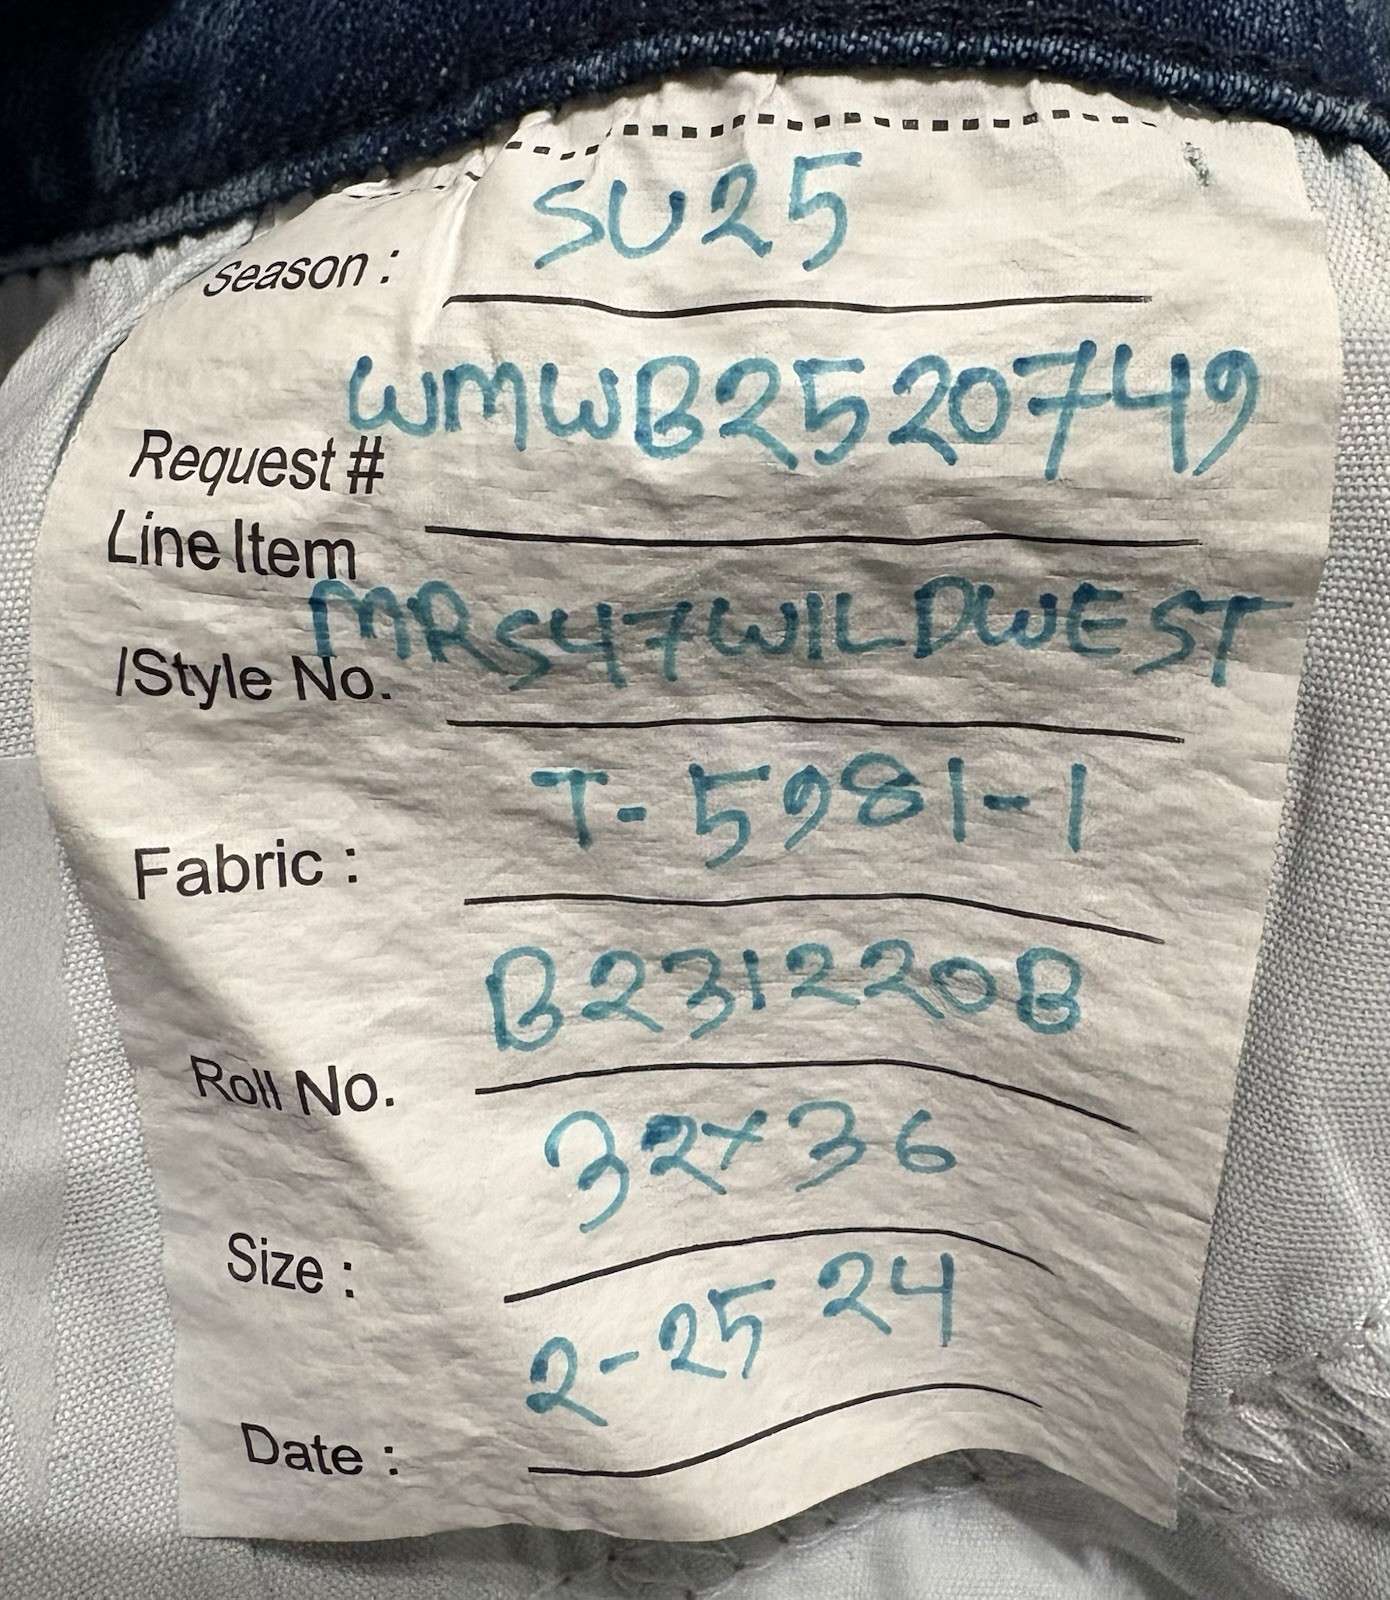 Season : SU25
WMWB2520749
Request #
Line Item
MRS47WILDWEST
/Style No.
Fabric : T-5981-1
Roll No. B231220B
Size : 32x36
Date : 2-25 24